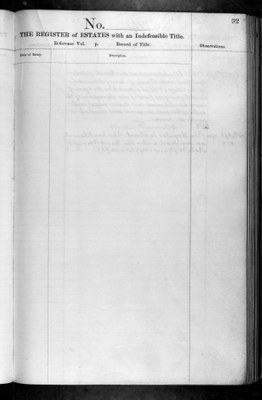 92
No.
THE REGISTER of ESTATES with an Indefeasible Title.
Reference Vol. p. Record of Title.
Observations.
Date of Entry.
Description.